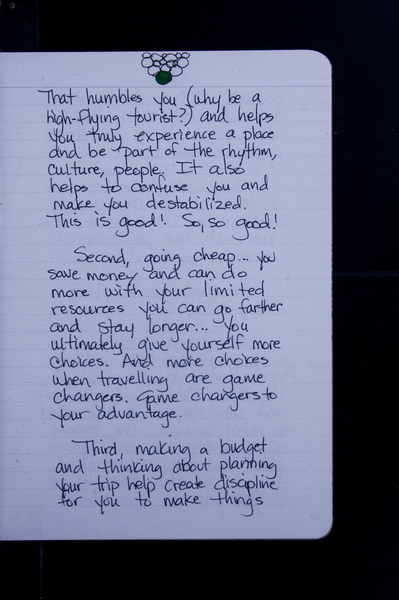 That humbles you (why be a
high-flying tourist?) and helps
you truly experience a place
and be part of the rhythm,
culture, people. It also
helps to confuse you and
make you destabilized.
This is good! So, so good!
Second, going cheap... you
save money and can do
more with your limited
resources you can go farther
and stay longer... you
ultimately give yourself more
choices. And more choices
when travelling are game
changers. Game changers to
your advantage.
Third, making a budget
and thinking about planning
your trip help create discipline
for you to make things